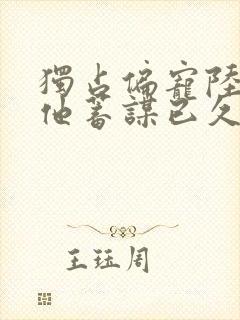 獨占偏寵陸
他蓄謀已久
王珏周